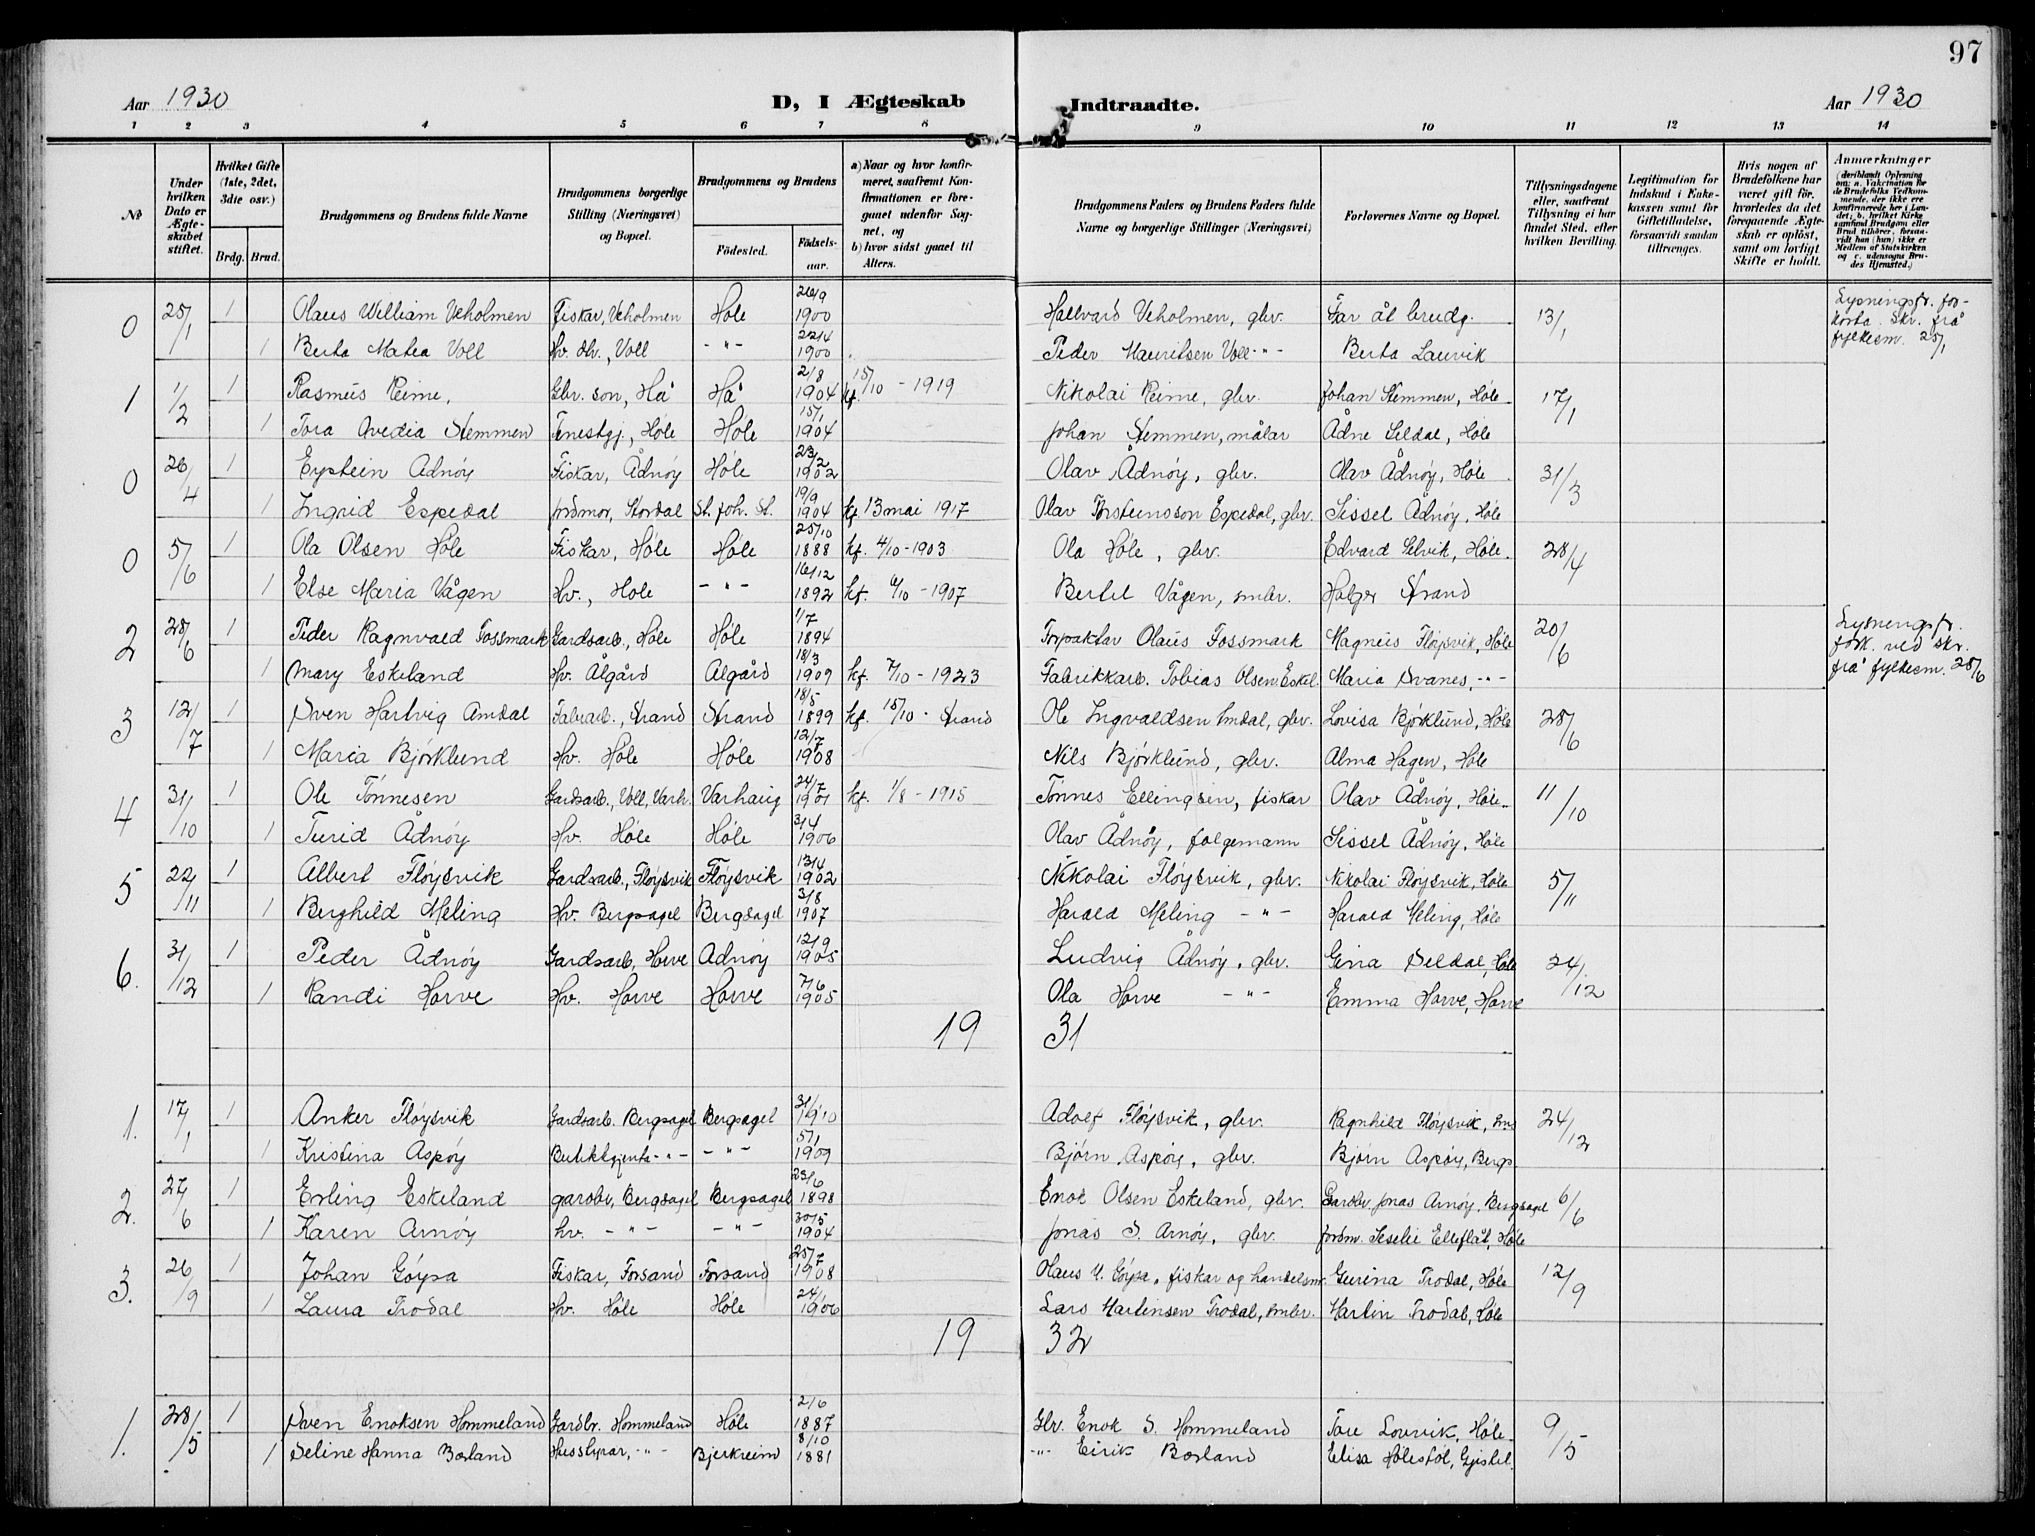 97
Aar 1930 D, I Ægteskab Indtraadte. Aar 1930
1 2 3 4 5 6 7 8 9 10 11 12 13 14
No
Under hvilken Dato er Ægteskabet stiftet.
Hvilket Gifte (1ste, 2det, 3die osv.)
Brdg. Brud.
Brudgommens og Brudens fulde Navne
Brudgommens borgerlige Stilling (Næringsvei) og Bopæl.
Brudgommens og Brudens
Fødested. Fødsels-aar.
a) Naar og hvor konfirmeret, saafremt Konfirmationen er foregaaet udenfor Sognet, og
b) hvor sidst gaaet til Alters.
Brudgommens Faders og Brudens Faders fulde Navne og borgerlige Stillinger (Næringsvei)
Forlovernes Navne og Bopæl.
Tillysningsdagene eller, saafremt Tillysning ei har fundet Sted, efter hvilken Bevilling.
Legitimation for Indskud i Enkekassen samt for Giftetilladelse, forsaavidt saadan tiltrænges.
Hvis nogen af Brudefolkene har været gift før, hvorledes da det foregaaende Ægteskab er opløst, samt om lovligt Skifte er holdt.
Anmærkninger (deriblandt Oplysning om: a. Vakcination for de Brudefolks Vedkommende, der ikke ere konfirmerede her i Landet; b. hvilket Kirkesamfund Brudgom eller Brud tilhører, forsaavidt han (hun) ikke er Medlem af Statskirken og c. udensogns Brudes Hjemsted.)
0 25/1 1 Olaus William Veholmen Fiskar, Veholmen Høle 26/9 1900 Hallvard Veholmen, gbr. Far åt brudg. 13/1 Lysningsfr. forkorta. Skr. frå fylkesm. 25/1
1 Berta Matea Voll Hv. dtr., Voll -"- 22/4 1900 Peder Mauritsen Voll -"- Berta Lauvik
1 1/2 1 Rasmus Reime, Gbr. son, Hå Hå 2/8 1904 kf. 15/10 - 1919 Nikolai Reime, gbr. Johan Stemmen, Høle 17/1
1 Tora Avedia Stemmen Tenestgj., Høle Høle 15/1 1904 Johan Stemmen, målar Ådne Seldal, Høle
0 26/4 1 Eystein Ådnøy Fiskar, Ådnøy Høle 23/2 1902 Olav Ådnøy, gbr. Olav Ådnøy, Høle 31/3
1 Ingrid Espedal Jordmor, Stordal St. Joh. St. 19/9 1904 kf 13 mai 1917 Olav Torsteinsson Espedal, gbr. Sissel Ådnøy, Høle
0 5/6 1 Ola Olsen Høle Fiskar, Høle Høle 25/10 1888 kf. 4/10 - 1903 Ola Høle, gbr. Edvard Selvik, Høle 28/4
1 Else Maria Vågen Hv., Høle -"- 16/12 1892 kf. 6/10 - 1907 Bertel Vågen, smbr. Holger Strand
2 28/6 1 Peder Ragnvald Fossmark Gardsarb., Høle Høle 1/7 1894 Forpaktar Olaus Fossmark Magnus Fløysvik, Høle 20/6 Lysningsfr. fork. ved skr. frå fylkesm. 28/6
1 Mary Eskeland Hv. Ålgård Ålgård 18/3 1909 kf. 7/10 - 1923 Fabrikkarb. Tobias Olsen Eskel. Maria Svanes, -"-
3 12/7 1 Sven Hartvig Amdal Fabrarb., Strand Strand 18/5 1899 kf. 15/10 - Strand Ole Ingvaldsen Amdal, gbr. Lovisa Bjørklund, Høle 28/6
1 Maria Bjørklund Hv. Høle Høle 12/7 1908 Nils Bjørklund, gbr. Alma Hagen, Høle
4 31/10 1 Ole Tønnesen Gardsarb., Voll, Varh. Varhaug 24/7 1901 kf. 1/8 - 1915 Tønnes Ellingsen, fiskar Olav Ådnøy, Høle 11/10
1 Turid Ådnøy Hv. Høle Høle 3/4 1906 Olav Ådnøy, folgemann Sissel Ådnøy, Høle
5 22/11 1 Albert Fløysvik Gardsarb., Fløysvik Fløysvik 13/4 1902 Nikolai Fløysvik, gbr. Nikolai Fløysvik, Høle 5/11
1 Berghild Meling Hv. Bergsagel Bergsagel 3/8 1907 Harald Meling -"- Harald Meling, Høle
6. 31/12 1 Peder Ådnøy Gardsarb, Horve Ådnøy 12/9 1905 Ludvig Ådnøy, gbr. Gina Seldal, Høle 24/12
1 Randi Horve Hv. Horve Horve 7/6 1905 Ola Horve -"- Emma Horve, Horve
19 31
1. 17/1 1 Anker Fløysvik Gardsarb. Bergsagel Bergsagel 31/1 1910 Adolf Fløysvik, gbr. Ragnhild Fløysvik, 24/12
1 Kristina Aspøy Butikkgjenta -"- -"- 5/1 1909 Bjørn Aspøy, gbr. Bjørn Aspøy, Bergs.
2. 27/6 1 Erling Eskeland gardbr, Bergsagel Bergsagel 23/6 1898 Enok Olsen Eskeland, gbr. Gardbr. Jonas Arnøy, Bergsagel 6/6
1 Karen Arnøy hv. -"- -"- 30/5 1904 Jonas S. Arnøy, gbr. Jordm. Selie Elleflåt, Høle
3. 26/9 1 Johan Gøysa Fiskar, Forsand Forsand 25/7 1908 Olaus U. Gøysa, fiskar og handelsm. Gurina Trodal, Høle 12/9
1 Laura Trodal Hv. Høle Høle 24/1 1906 Lars Martinsen Trodal, smbr. Martin Trodal, Høle
19 32
1. 28/5 1 Sven Enoksen Hommeland Gardbr. Hommeland Høle 2/6 1887 Gbr. Enok S. Hommeland Tore Lauvvik, Høle 9/5
1 Seline Hanna Børland Husstyrar, -"- Bjerkreim 8/10 1881 -"- Eirik Børland Elisa Hølestøl, Gjestel.